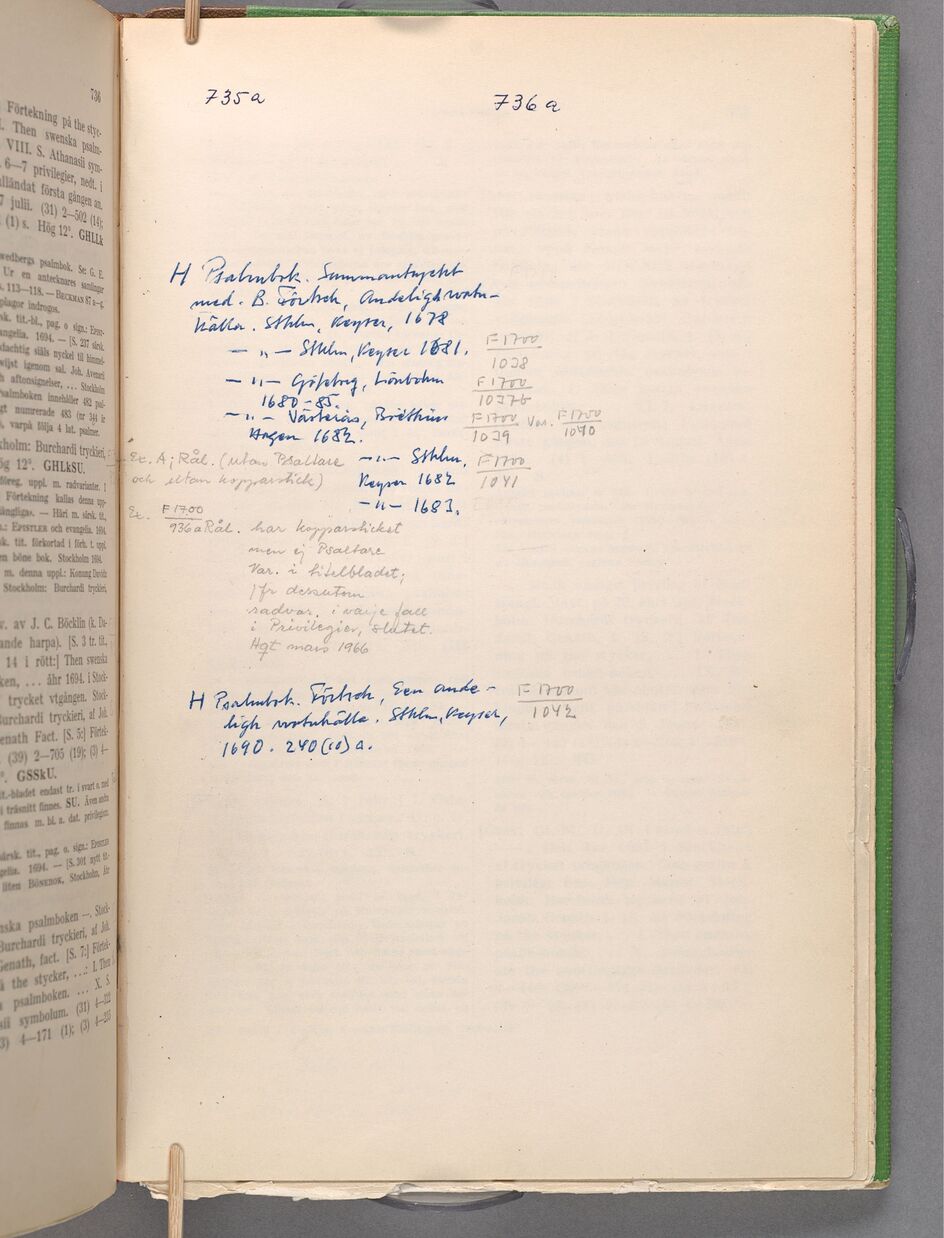 736
Förtekning på the styc-
Then swenska psalm-
VIII. S. Athanasii sym-
6—7 privilegier, nedt. i
första gången an.
7 julii. (31) 2—502 (14);
(1) s. Hög 12°. GHLLk
wedbergs psalmbok. Se: G. E.
Ur en antecknares samlingar
s. 113—118. — BECKMAN 87
plagor indrogos.
angelia. 1694. — [S. 237
dachtig stäls nyckel til himmel-
wijst igenom sal. Joh. Avenarii
aftonsignelser, ... Stockholm
psalmboken innehåller 482 psal-
gt numrerade 483 (nr 344 är
varpå följa 4 lat. psalmer.
kholm: Burchardi tryckieri,
ög 12°. GHLkSU.
föreg. uppl. m. radvarianter. I
Förtekning kallas denna upp-
gänglige». — Häri m. särsk. tit.,
EPISTLER och evangelia. 1694.
sk. tit. förkortad i förh. t. uppl.
en böne bok. Stockholm 1694.
m. denna uppl.: Konung Davids
Stockholm: Burchardi tryckieri,
v. av J. C. Böcklin (k. Da-
ande harpa). [S. 3 tr. tit.,
14 i rött:] Then swenska
ken, ... åhr 1694. i Stock-
trycket vtgången. Stock-
Burchardi tryckieri, af Joh.
enath Fact. [S. 5:] Förtek-
(39) 2—705 (19); (3) 4—
GSSkU.
tit.-bladet endast tr. i svart o. med
i träsnitt finnes. SU. Även andra
finnas m. bl. a. dat. privilegier.
särsk. tit., pag. o. sign.: EPISTLER
gelia. 1694. — [S. 301 nytt tit-
liten BÖNEBOK, Stockholm, åhr
nska psalmboken —. Stock-
Burchardi tryckieri, af Joh.
Genath, fact. [S. 7:] Förtek-
å the stycker, ...: I. Then
psalmboken. ... X. S.
sii symbolum. (31) 4—
3) 4—171 (1); (3) 4—
735a 736a
H Psalmbok. Sammantryckt
med. B. Förtsch, Andeligh watu-
källa. Sthlm, Keyser, 1678
— „ — Sthlm, Keyser 1681. F1700
1038
— „ — Göteborg, Lionbohm F1700
1680-85. 1037b
— „ — Västerås, F1700 Var. F1700
Hagen 1682. 1039 1040
Ex. A i Rål. (utan Psaltare — „ — Sthlm, F1700
och utan kopparstick) Keyser 1682 1041
— „ — 1683.
Ex. F1700
936a Rål. har kopparsticket
men ej Psaltare
Var. i titelbladet;
jfr dessutom
radvar. i varje fall
i Privilegier, slutet.
Hqt mars 1966
H Psalmbok. Förtsch, Een ande- F1700
ligh watukälla. Sthlm, Keyser, 1042
1690. 240(10) s.